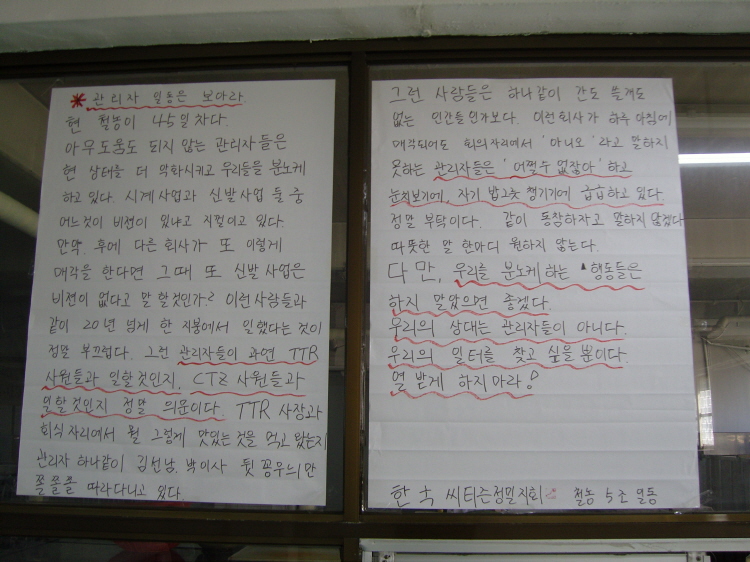 * 관리자 일동은 보아라
현 철농이 45일차다.
아무도움도 되지 않는 관리자들은
현 상태를 더 악화시키고 우리들을 분노케
하고 있다. 시계사업과 신발사업 둘 중
어느것이 비젼이 있냐고 지껄이고 있다.
만약 후에 다른회사가 또 이렇게
매각을 한다면 그때 또 신발사업은
비젼이 없다고 말 할것인가? 이런사람들과
같이 20년 넘게 한 지붕에서 일했다는 것이
정말 부끄럽다. 그런 관리자들이 과연 TTR
사원들과 일할것인지, CTZ 사원들과
일할것인지 정말 의문이다. TTR 사장과
회식자리에서 뭘 그렇게 맛있는것을 먹고 왔는지
관리자 하나같이 김선남, 박이사 뒷꽁무늬만
쫄쫄쫄 따라다니고 있다.
그런 사람들은 하나같이 간도 쓸개도
없는 인간들인가보다. 이런회사가 하루 아침에
매각되어도 회의자리에서 '아니오'라고 말하지
못하는 관리자들은 '어쩔수 없잖아' 하고
눈치보기에, 자기 밥그릇 챙기기에 급급하고 있다.
정말 부탁이다. 같이 동참하자고 말하지 않겠다
따뜻한 말 한마디 원하지 않는다.
다만, 우리를 분노케하는 행동들은
하지 말았으면 좋겠다.
우리의 상대는 관리자들이 아니다.
우리의 일터를 찾고 싶을뿐이다.
열 받게 하지마라!
한국씨티즌정밀지회 철농 5조 일동